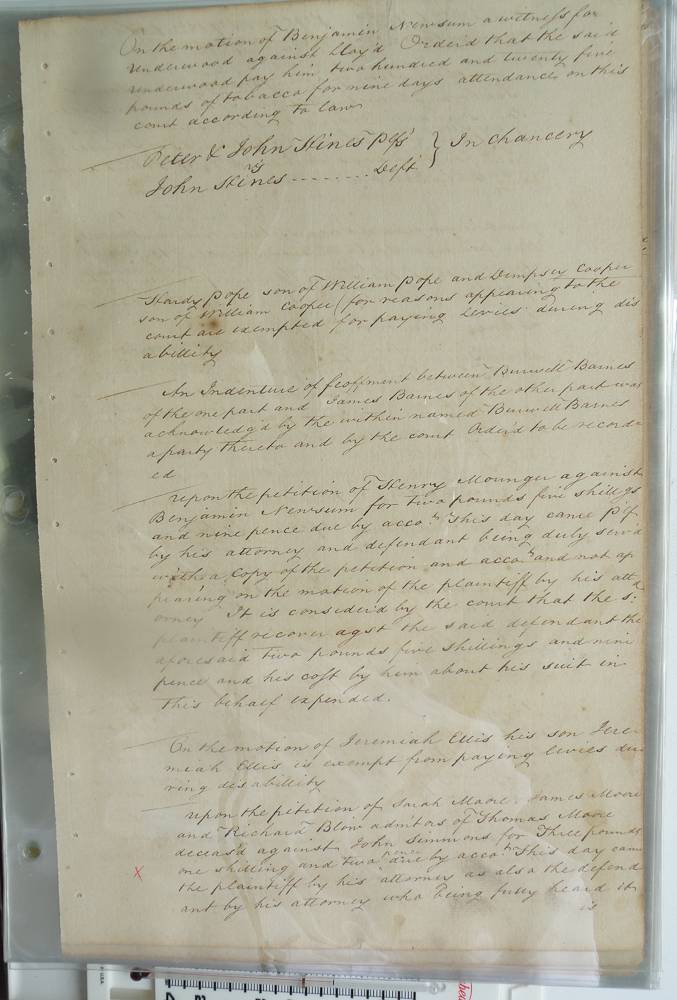 On the motion of Benjamin Newsum a witness for
Underwood against Lloy'd Order'd that the said
Underwood pay him two hundred and twenty five
pounds of tobacco for nine days attendance on this
court according to law
Peter & John Hines Plfs } In Chancery
vs
John Hines - - - - - - - - Deft
Hardy Pope son of William Pope and Dempsey Cooper
son of William Cooper (for reasons appearing to the
court are exempted for paying Levies during dis
abillity
An Indenture of feoffment between Burwell Barnes
of the one part and James Barnes of the other part was
acknowledg'd by the within named Burwell Barnes
a party thereto and by the court Order'd to be recorde
ed
Upon the petition of Henry Mounger against
Benjamin Newsum for two pounds five shillgs
and nine pence due by acco.t This day came Plf
by his attorney and defendant being duly serv'd
with a Copy of the petition and acco.t and not ap
pearing on the motion of the plaintiff by his att
orney It is consider'd by the court that the s.d
plaintiff recover agst the said defendant the
aforesaid two pounds five shillings and nine
pence and his cost by him about his suit in
this behalf expended.
On the motion of Jeremiah Ellis his son Jere
miah Ellis is exempt from paying levies du
ring desabillity
Upon the petition of Sarah Moore James Moore
and Richard Blow admtors of Thomas Moore
deceas'd against John Simmons for Three pounds
one shilling and two pence due by acco.t This day came
X the plaintiff by his attorney as also the defend
ant by his attorney who being fully heard it
is